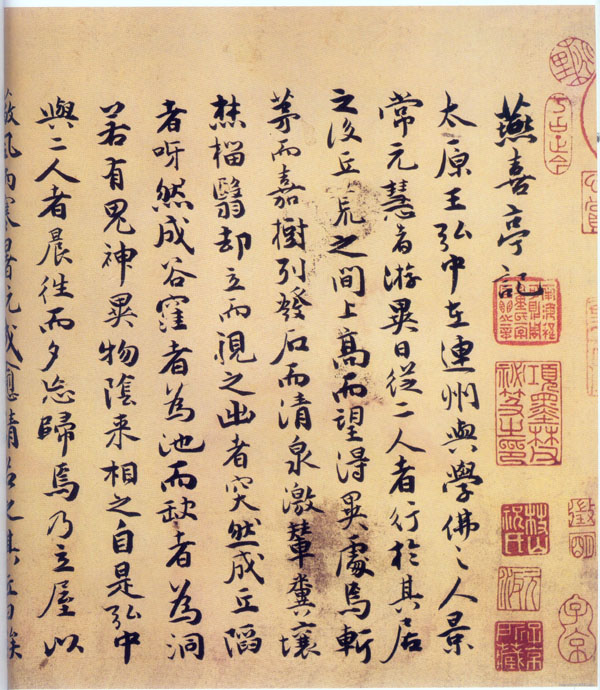 燕喜亭記
太原王弘中在連州與學佛之人景
常元慧者游異日從二人者行於其居
之後丘荒之間上高而望得異處焉斬
茅而嘉樹列發石而清泉激輦糞壤
焚榴翳却立而視之出者突然成丘陷
者呀然成谷窪者為池而缺者為洞
若有鬼神異物陰来相之自是弘中
與二人者晨往而夕忘歸焉乃立屋以
風雨寒暑既成愈請名之其丘曰俟
項墨林父
祕笈之印
徵明
子京